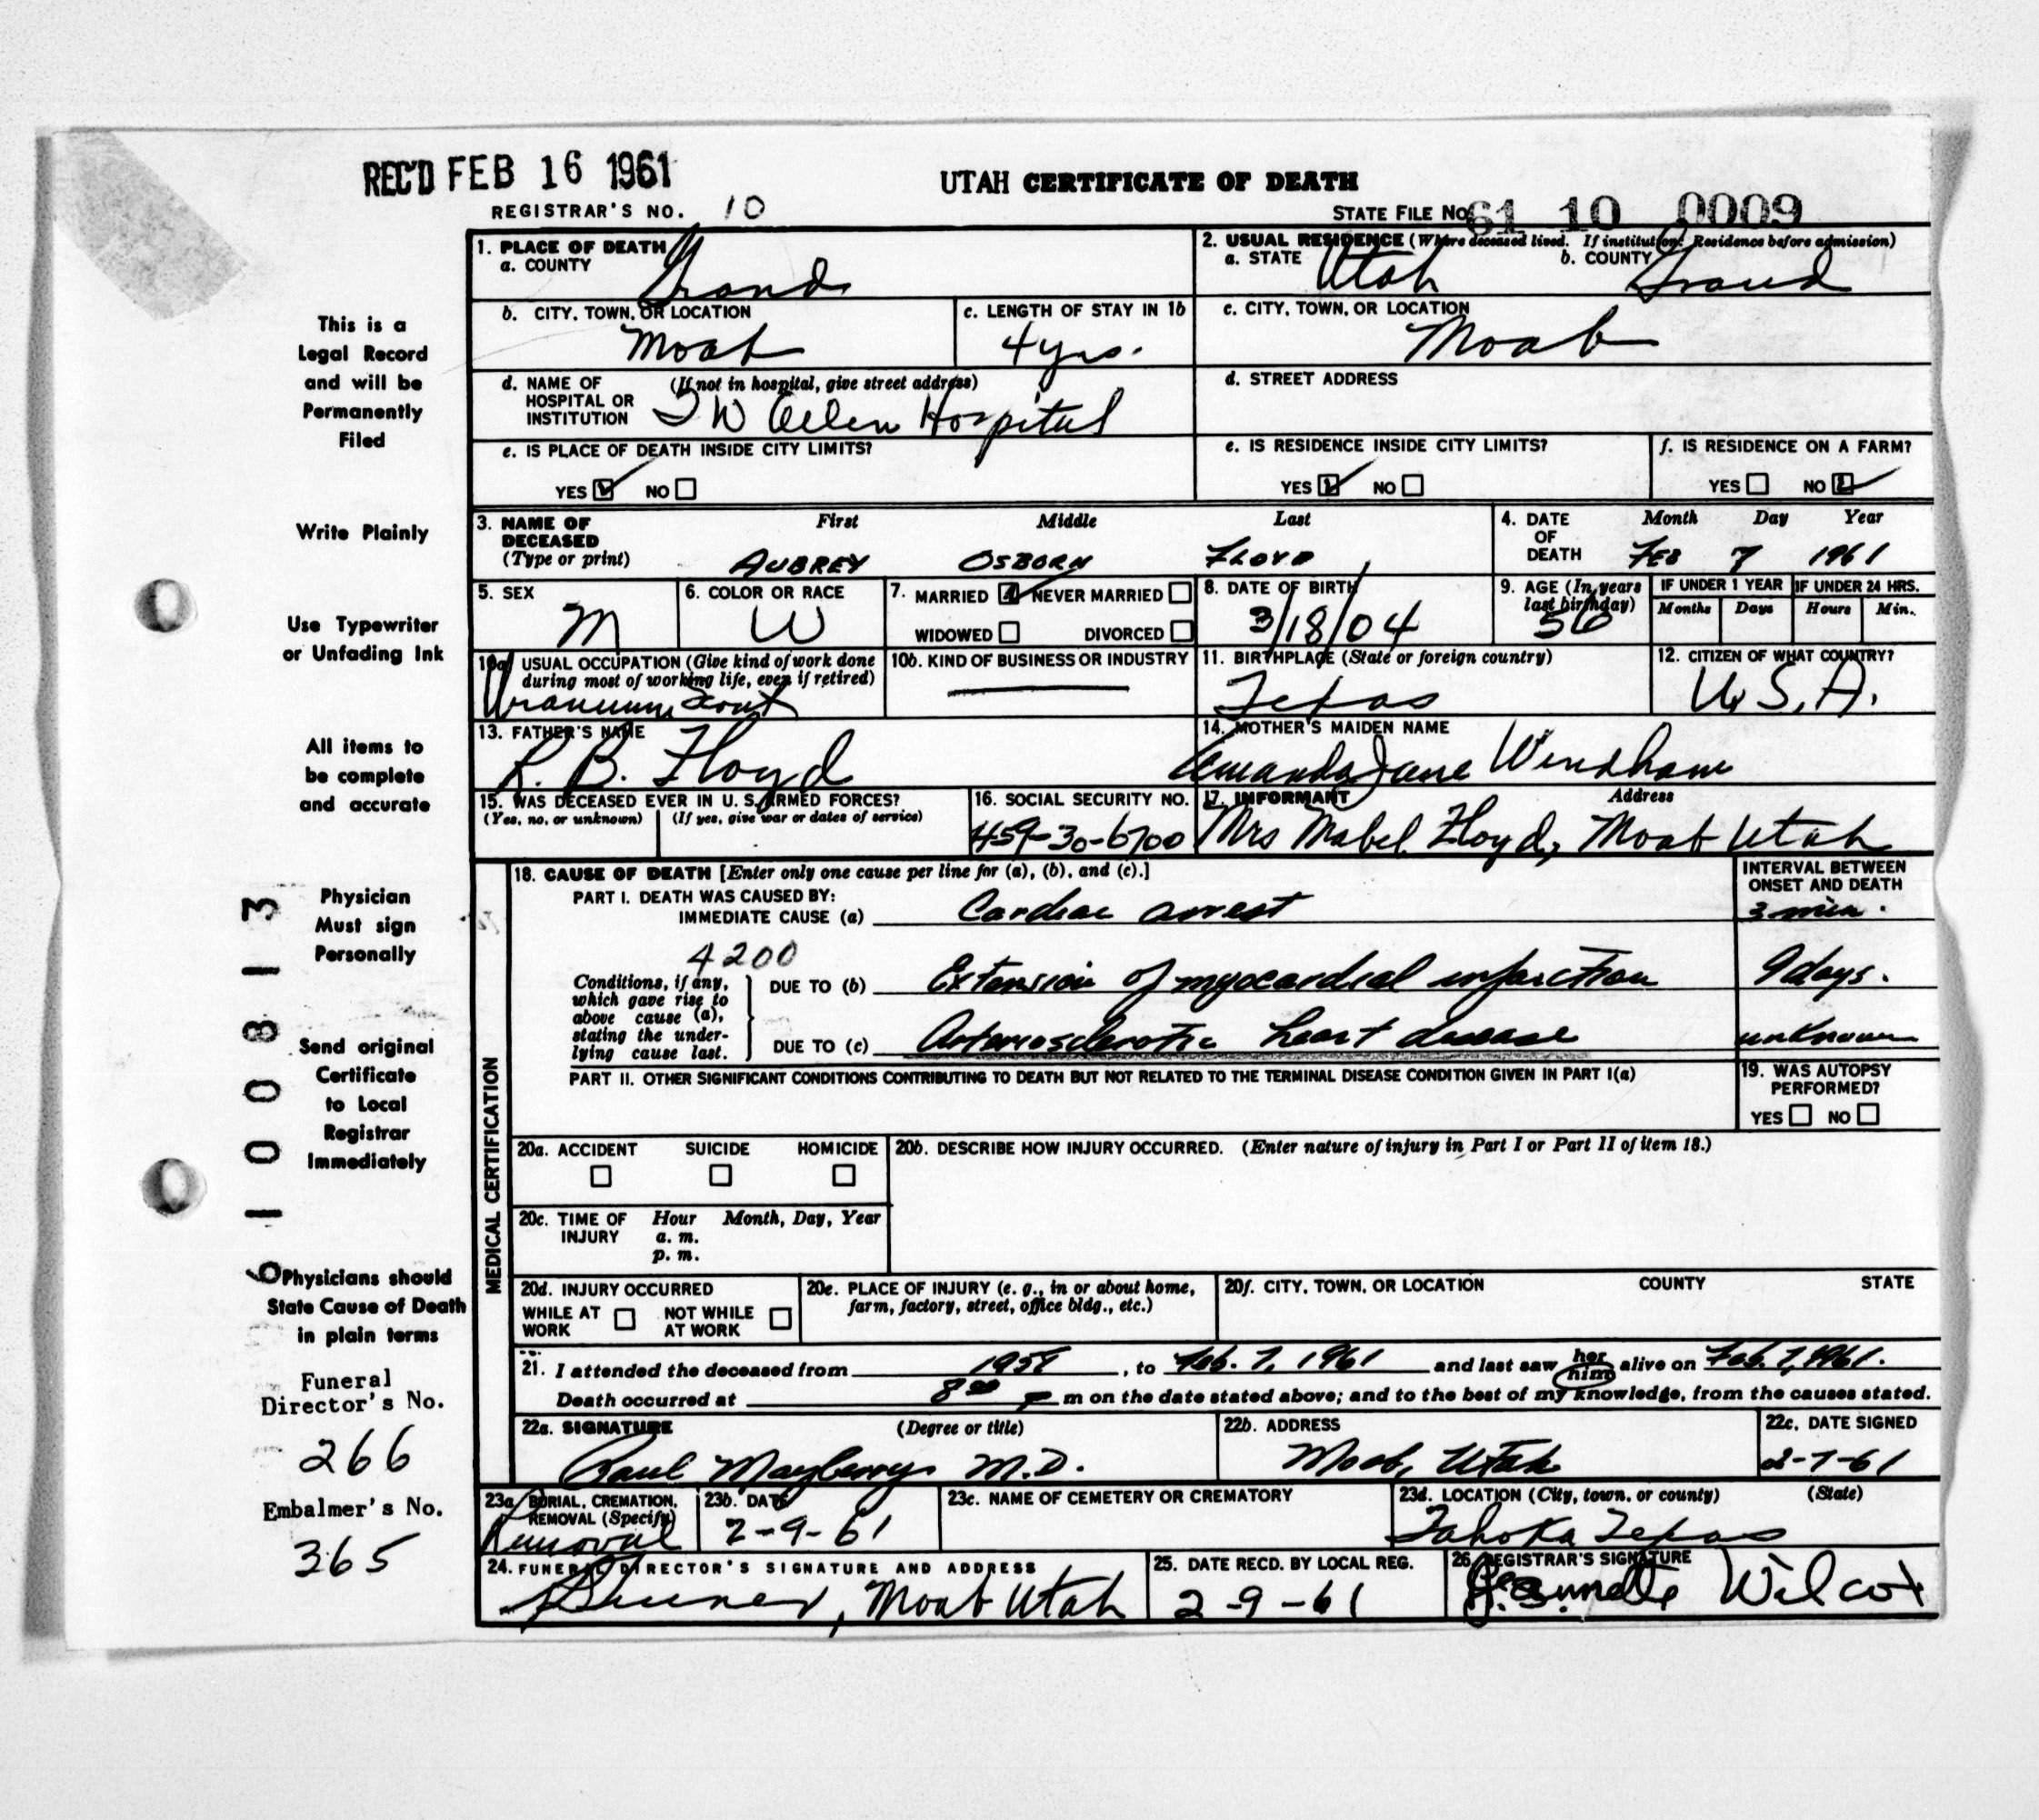 REC'D FEB 16 1961
UTAH CERTIFICATE OF DEATH
REGISTRAR'S NO. 10
STATE FILE NO. 61 10 0009
This is a
Legal Record
and will be
Permanently
Filed
Write Plainly
Use Typewriter
or Unfading Ink
All items to
be complete
and accurate
Physician
Must sign
Personally
Send original
Certificate
to Local
Registrar
Immediately
Physicians should
State Cause of Death
in plain terms
Funeral
Director's No.
266
Embalmer's No.
365
6100813
1. PLACE OF DEATH
a. COUNTY Grand
2. USUAL RESIDENCE (Where deceased lived. If institution: Residence before admission)
a. STATE Utah b. COUNTY Grand
b. CITY, TOWN, OR LOCATION
Moab
c. LENGTH OF STAY IN 1b
4 yrs.
c. CITY, TOWN, OR LOCATION
Moab
d. NAME OF (If not in hospital, give street address)
HOSPITAL OR
INSTITUTION I W Allen Hospital
d. STREET ADDRESS
e. IS PLACE OF DEATH INSIDE CITY LIMITS?
YES NO
e. IS RESIDENCE INSIDE CITY LIMITS?
YES NO
f. IS RESIDENCE ON A FARM?
YES NO
3. NAME OF First Middle Last
DECEASED
(Type or print) AUBREY OSBORN FLOYD
4. DATE Month Day Year
OF
DEATH FEB 7 1961
5. SEX
M
6. COLOR OR RACE
W
7. MARRIED NEVER MARRIED
WIDOWED DIVORCED
8. DATE OF BIRTH
3/18/04
9. AGE (In years
last birthday)
56
IF UNDER 1 YEAR IF UNDER 24 HRS.
Months Days Hours Min.
10a. USUAL OCCUPATION (Give kind of work done
during most of working life, even if retired)
Uranium Scout
10b. KIND OF BUSINESS OR INDUSTRY
11. BIRTHPLACE (State or foreign country)
Texas
12. CITIZEN OF WHAT COUNTRY?
U.S.A.
13. FATHER'S NAME
R. B. Floyd
14. MOTHER'S MAIDEN NAME
Amanda Jane Windham
15. WAS DECEASED EVER IN U. S. ARMED FORCES?
(Yes, no, or unknown) (If yes, give war or dates of service)
16. SOCIAL SECURITY NO.
459-30-6700
17. INFORMANT Address
Mrs Mabel Floyd, Moab Utah
MEDICAL CERTIFICATION
18. CAUSE OF DEATH [Enter only one cause per line for (a), (b), and (c).]
INTERVAL BETWEEN
ONSET AND DEATH
PART I. DEATH WAS CAUSED BY:
IMMEDIATE CAUSE (a) Cardiac arrest 3 min.
4200
Conditions, if any,
which gave rise to
above cause (a),
stating the under-
lying cause last.
DUE TO (b) Extension of myocardial infarction 9 days.
DUE TO (c) Arteriosclerotic heart disease unknown
PART II. OTHER SIGNIFICANT CONDITIONS CONTRIBUTING TO DEATH BUT NOT RELATED TO THE TERMINAL DISEASE CONDITION GIVEN IN PART I(a)
19. WAS AUTOPSY
PERFORMED?
YES NO
20a. ACCIDENT SUICIDE HOMICIDE
20b. DESCRIBE HOW INJURY OCCURRED. (Enter nature of injury in Part I or Part II of item 18.)
20c. TIME OF Hour Month, Day, Year
INJURY a. m.
p. m.
20d. INJURY OCCURRED
WHILE AT NOT WHILE
WORK AT WORK
20e. PLACE OF INJURY (e. g., in or about home,
farm, factory, street, office bldg., etc.)
20f. CITY, TOWN, OR LOCATION COUNTY STATE
21. I attended the deceased from , to Feb. 7, 1961 and last saw her him alive on Feb. 7, 1961.
Death occurred at 8 00 p m on the date stated above; and to the best of my knowledge, from the causes stated.
22a. SIGNATURE (Degree or title)
Paul Mayberry M.D.
22b. ADDRESS
Moab, Utah
22c. DATE SIGNED
2-7-61
23a. BURIAL, CREMATION,
REMOVAL (Specify)
Removal
23b. DATE
2-9-61
23c. NAME OF CEMETERY OR CREMATORY
23d. LOCATION (City, town, or county) (State)
Tahoka Texas
24. FUNERAL DIRECTOR'S SIGNATURE AND ADDRESS
, Moab Utah
25. DATE RECD. BY LOCAL REG.
2-9-61
26. REGISTRAR'S SIGNATURE
Wilcox